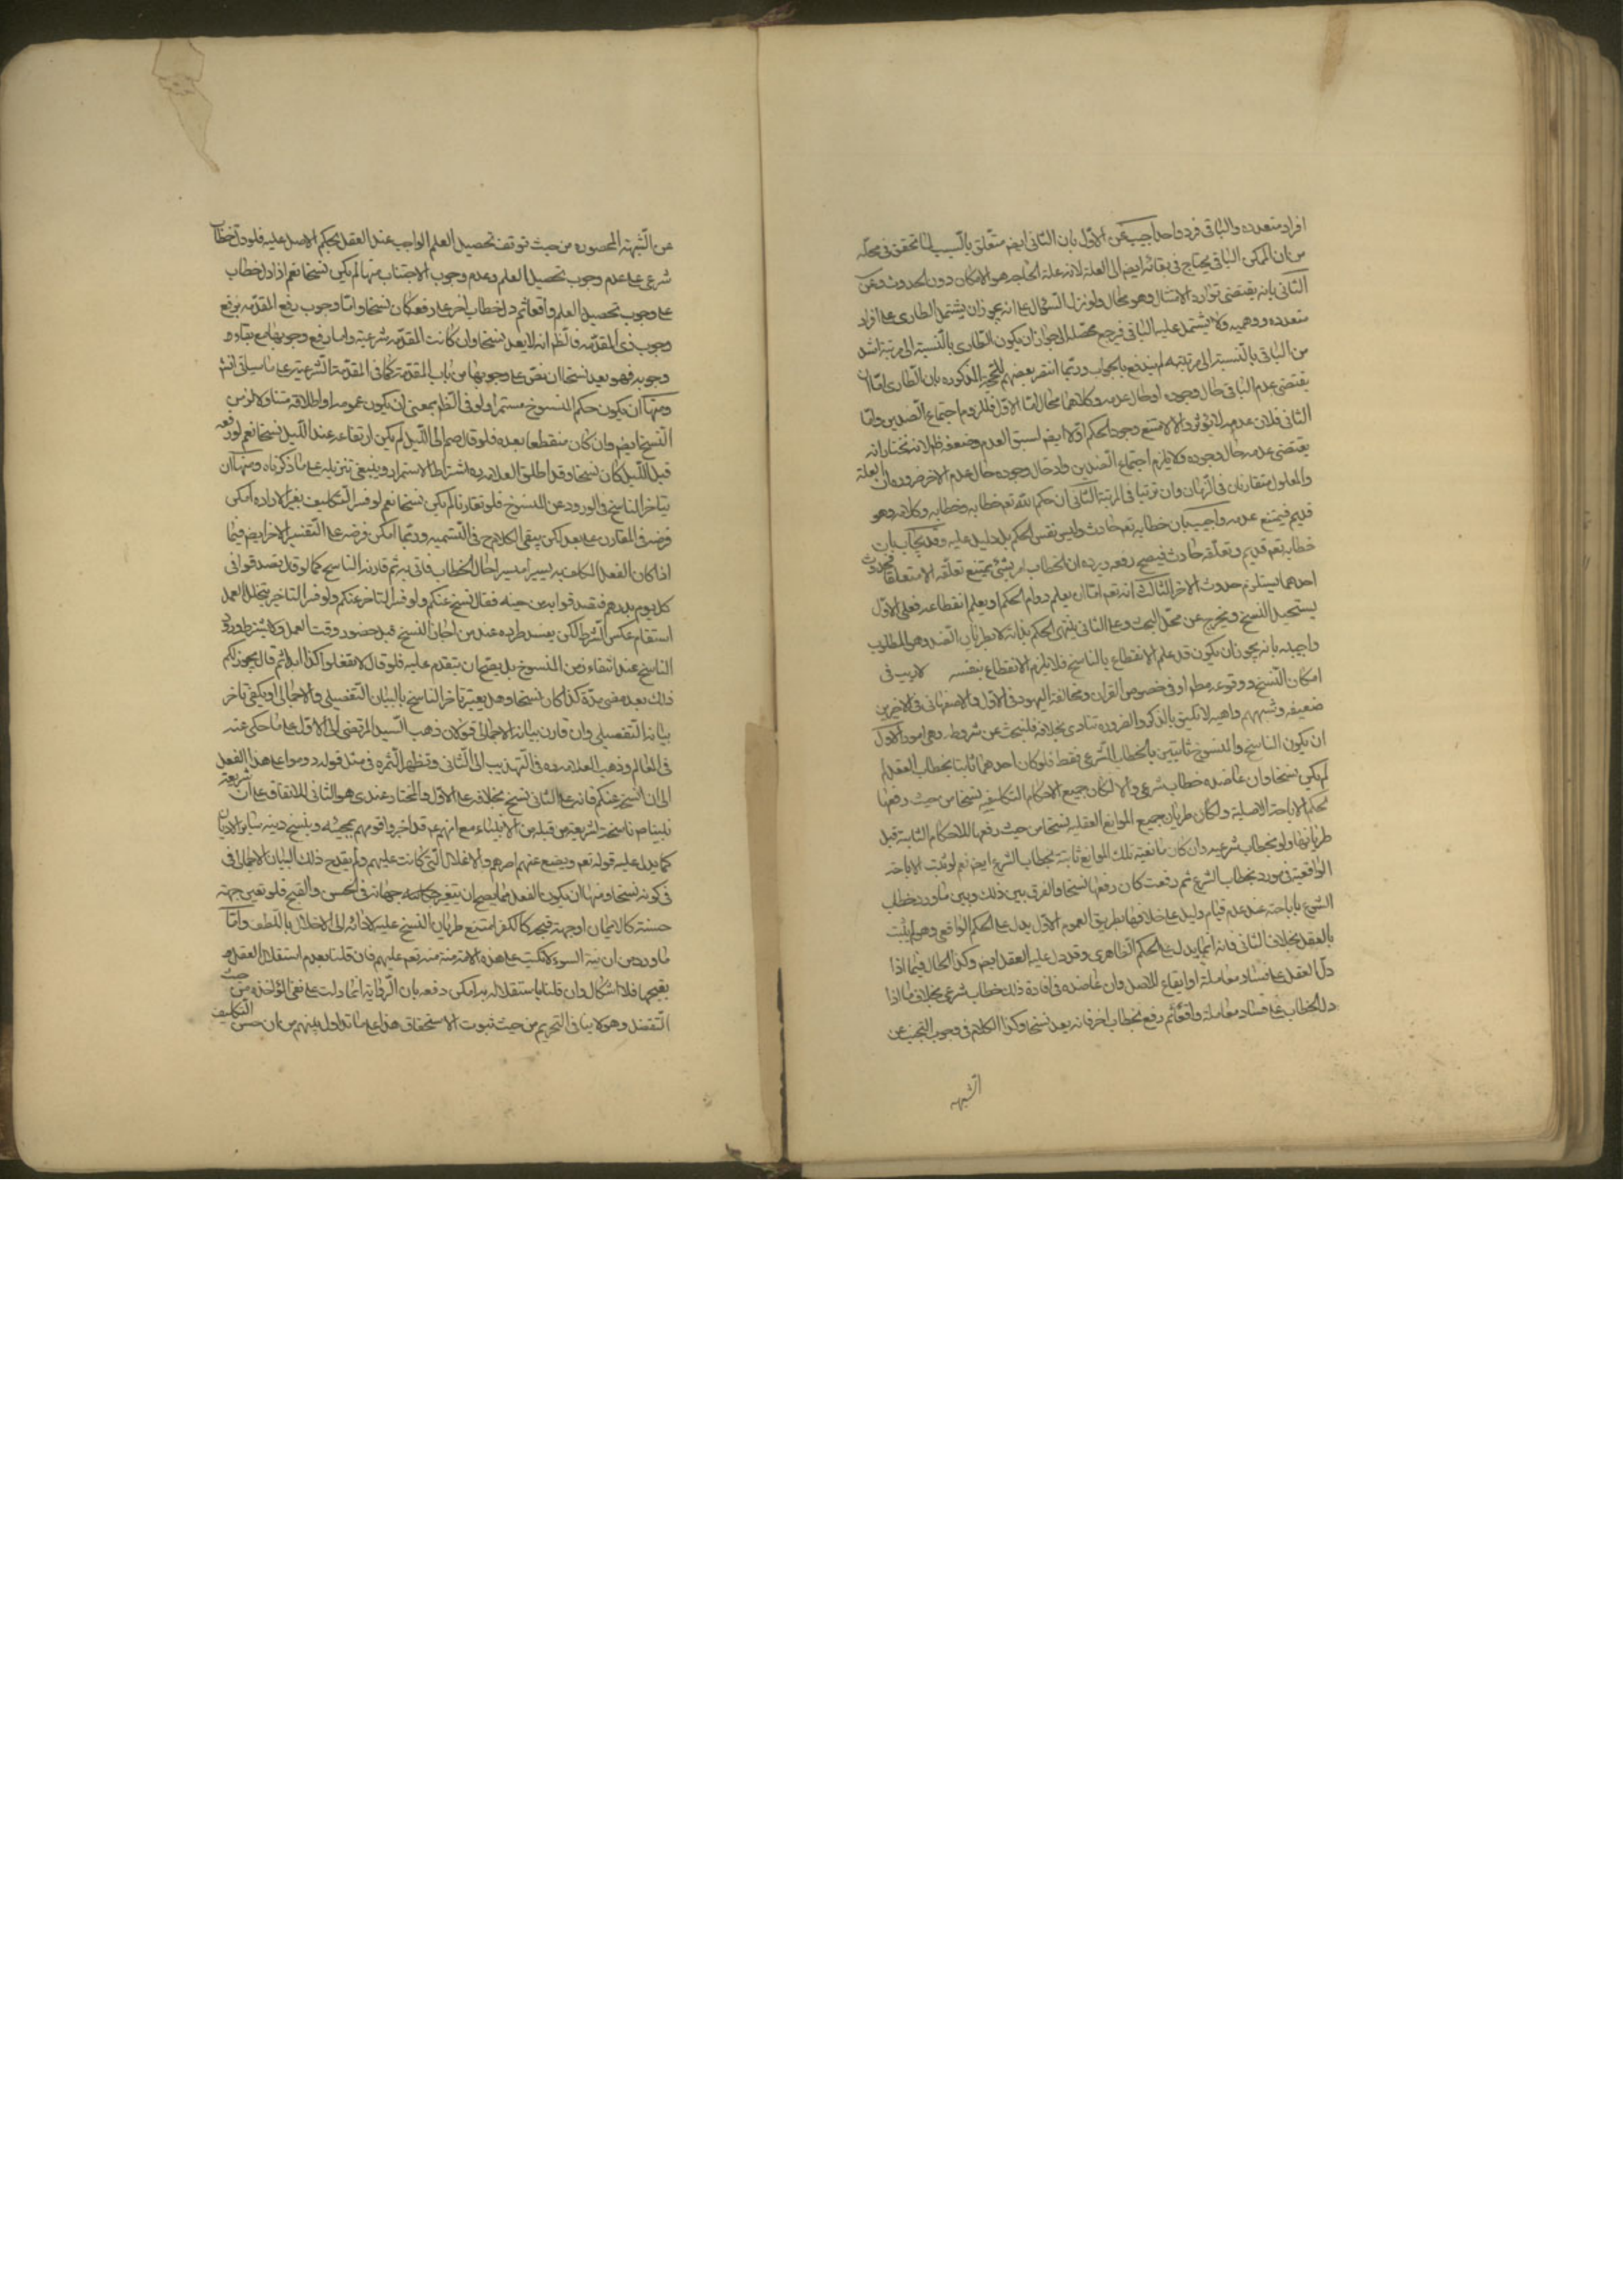 افراد متعدده والباقى فرد واحد اجيب عن الاول بان الثانى ايضم متعلق بالسبب لما تحقق فى محله
من ان الممكن الباقى يحتاج فى بقائه ايضم الى العلة لان علة الحاجه هو الامكان دون الحدوث وعن
الثانى بانه يقتضى توارد الامثال وهو محال ولو نزل السؤال على انه يجوز ان يشتمل الطارى على افراد
متعدده ووهميه ولا يشتمل عليه الباقى فيرجع محصله الى جواز ان يكون الطارى بالنسبة الى مرتبة اشد
من الباقى بالنسبة الى مرتبته لم يندفع بالجواب وربما انتصر بعضهم للحجة المذكوره بان الطارى اما ان
يقتضى عدم الباقى حال وجوده او حال عدمه وكلاهما محال اما الاول فللزوم اجتماع الضدين واما
الثانى فلان عدمه لا يؤثر والا لامتنع وجود الحكم اولا ايضم لسبق العدم وضعفه ظم لانه نختار انه
يقتضى عدمه حال وجوده ولا يلزم اجتماع الضدين اذ حال وجوده حال عدم الاخر ضروره ان العلة
والمعلول متقارنان فى الزمان وان ترتبا فى المرتبة الثانى ان حكم الله تعم خطابه وخطابه وكلامه وهو
قديم فيمتنع عدمه واجيب بان خطابه تعم حادث وليس نفس الحكم بل دليل عليه وقد يجاب بان
خطابه تعم قديم وتعلقه حادث فيصح رفعه ويرده ان الخطاب امر نسبى يمتنع تعلقه الا متعلقا فحدوث
احدهما يستلزم حدوث الاخر الثالث انه تعم اما ان يعلم دوام الحكم او يعلم انقطاعه فعلى الاول
يستحيل النسخ ويخرج عن محل البحث وعلى الثانى ينتهى الحكم بذاته لا بطريان الضد وهو المطلوب
واجيب بانه يجوز ان يكون قد علم الانقطاع بالناسخ فلا يلزم الانقطاع بنفسه لا ريب فى
امكان النسخ ووقوعه مطم او فى خصوص القران ومخالفة اليهود فى الاول والاصفهانى فى الاخيرين
ضعيفه وشبههم واهيه لا تليق بالذكر والضروره تنادى بخلافه فلنبحث عن شروطه وهى امور الاول
ان يكون الناسخ والمنسوخ ثابتين بالخطاب الشرعى فقط فلو كان احدهما ثابتا بخطاب العقل
لم يكن نسخا وان عاضده خطاب شرعى والا لكان جميع الاحكام التكليفيه نسخا من حيث رفعها
لحكم الاباحة الاصلية ولكان طريان جميع الموانع العقليه نسخا من حيث رفعها للاحكام الثابتة قبل
طريانها ولو بخطاب شرعيه وان كان مانعية تلك الموانع ثابتة بخطاب الشرع ايضم نعم لو ثبت الاباحة
الواقعية فى مورد بخطاب الشرع ثم رفعت كان رفعها نسخا والفرق بين ذلك وبين ما ورد بخطاب
الشرع باباحته عند عدم قيام دليل على خلافها بطريق العموم ان الاول يدل على الحكم الواقعى وهو لم يثبت
بالعقل بخلاف الثانى فانه انما يدل على الحكم الظاهرى وقد دل عليه العقل ايضم وكذا الحال فيما اذا
دل العقل على فساد معاملة او ايقاع للاصل وان عاضده فى افادة ذلك خطاب شرعى بخلاف ما اذا
دل الخطاب على فساد معاملة واقعا ثم رفع بخطاب اخر فانه يعد نسخا وكذا الكلام فى وجوب التجنب عن
الشبهه
عن الشبهة المحصوره من حيث توقف تحصيل العلم الواجب عند العقل بحكم الاصل عليه فلو دل خطاب
شرعى على عدم وجوب تحصيل العلم وعدم وجوب الاجتناب منها لم يكن نسخا نعم اذا دل خطاب
على وجوب تحصيل العلم واقعا ثم دل خطاب اخر على رفعه كان نسخا واما وجوب رفع المقدمه برفع
وجوب ذى المقدمه فالظم انه لا يعد نسخا وان كانت المقدمه شرعية واما رفع وجوبها مع بقاء
وجوبه فهو يعد نسخا ان نص على وجوبها من باب المقدمة كما فى المقدمة الشرعية على ما سياتى انش
ومنها ان يكون حكم المنسوخ مستمرا ولو فى الظم بمعنى ان يكون عمومه او اطلاقه متناولا لزمن
النسخ ايضم وان كان منقطعا بعده فلو قال صم الى الليل لم يكن ارتفاعه عند الليل نسخا نعم لو رفعه
قبل الليل كان نسخا وقد اطلق العلامه ره اشتراط الاستمرار وينبغى تنزيله على ما ذكرناه ومنها ان
يتاخر الناسخ فى الورود عن المنسوخ فلو تقارنا لم يكن نسخا نعم لو فسر التكليف بغير الاراده امكن
فرضه فى المقارن على بعد لكن يبقى الكلام ح فى التسميه وربما امكن فرضه على التفسير الاخر ايضم فيما
اذا كان الفعل المكلف به يسيرا مسيرا حال الخطاب فاتى به ثم قارنه الناسخ كما لو قال تصدقوا فى
كل يوم بدرهم فتصدقوا به من حينه فقال نسخ عنكم ولو فسر التاخر عنكم ولو فسر التاخير بتخلل العمل
استقام عكس الشرط لكن يفسد طرده عند من اجاز النسخ قبل حضور وقت العمل ولا يشترط ورود
الناسخ عند انتفاء زمن المنسوخ بل يصح ان يتقدم عليه فلو قال لا تفعلوا كذا ابدا ثم قال يجوز لكم
ذلك بعد مضى مدة كذا كان نسخا وهل يعتبر تاخر الناسخ بالبيان التفصيلى والاجمالى او يكفى تاخر
بيانه التفصيلى وان قارن بيانه الاجمالى قولان ذهب السيد المرتضى الى الاول على ما حكى عنه
فى المعالم وذهب العلامه ره فى التهذيب الى الثانى وتظهر الثمره فى مثل قوله دوموا على هذا الفعل
الى ان انسخه عنكم فانه على الثانى نسخ بخلافه على الاول والمختار عندى هو الثانى للاتفاق على ان شريعة
نبينا ص ناسخة لشريعة من قبله من الانبياء مع انهم ع قد اخبروا قومهم بمجيئه وبنسخ دينه سائر الاديان
كما يدل عليه قوله تعم ويضع عنهم اصرهم والاغلال التى كانت عليهم ولم يقدح ذلك البيان الاجمالى فى
فى كونه نسخا ومنها ان يكون الفعل مما يصح ان يتغير جهاته فى الحسن والقبح فلو تعين جهة
حسنه كالايمان او جهة قبحه كالكفر امتنع طريان النسخ عليه لادائه الى الاخلال باللطف واما
ما ورد من ان نية السوء لا تكتب على هذه الامة منة منه تعم عليهم فان قلنا بعدم استقلال العقل
بقبحها فلا اشكال وان قلنا باستقلاله به امكن دفعه بان الرواية انما دلت على نفى المؤاخذه من حيث
التفضل وهو لا ينافى التحريم من حيث ثبوت الاستحقاق هذا على ما تداول بينهم من ان حسن التكليف